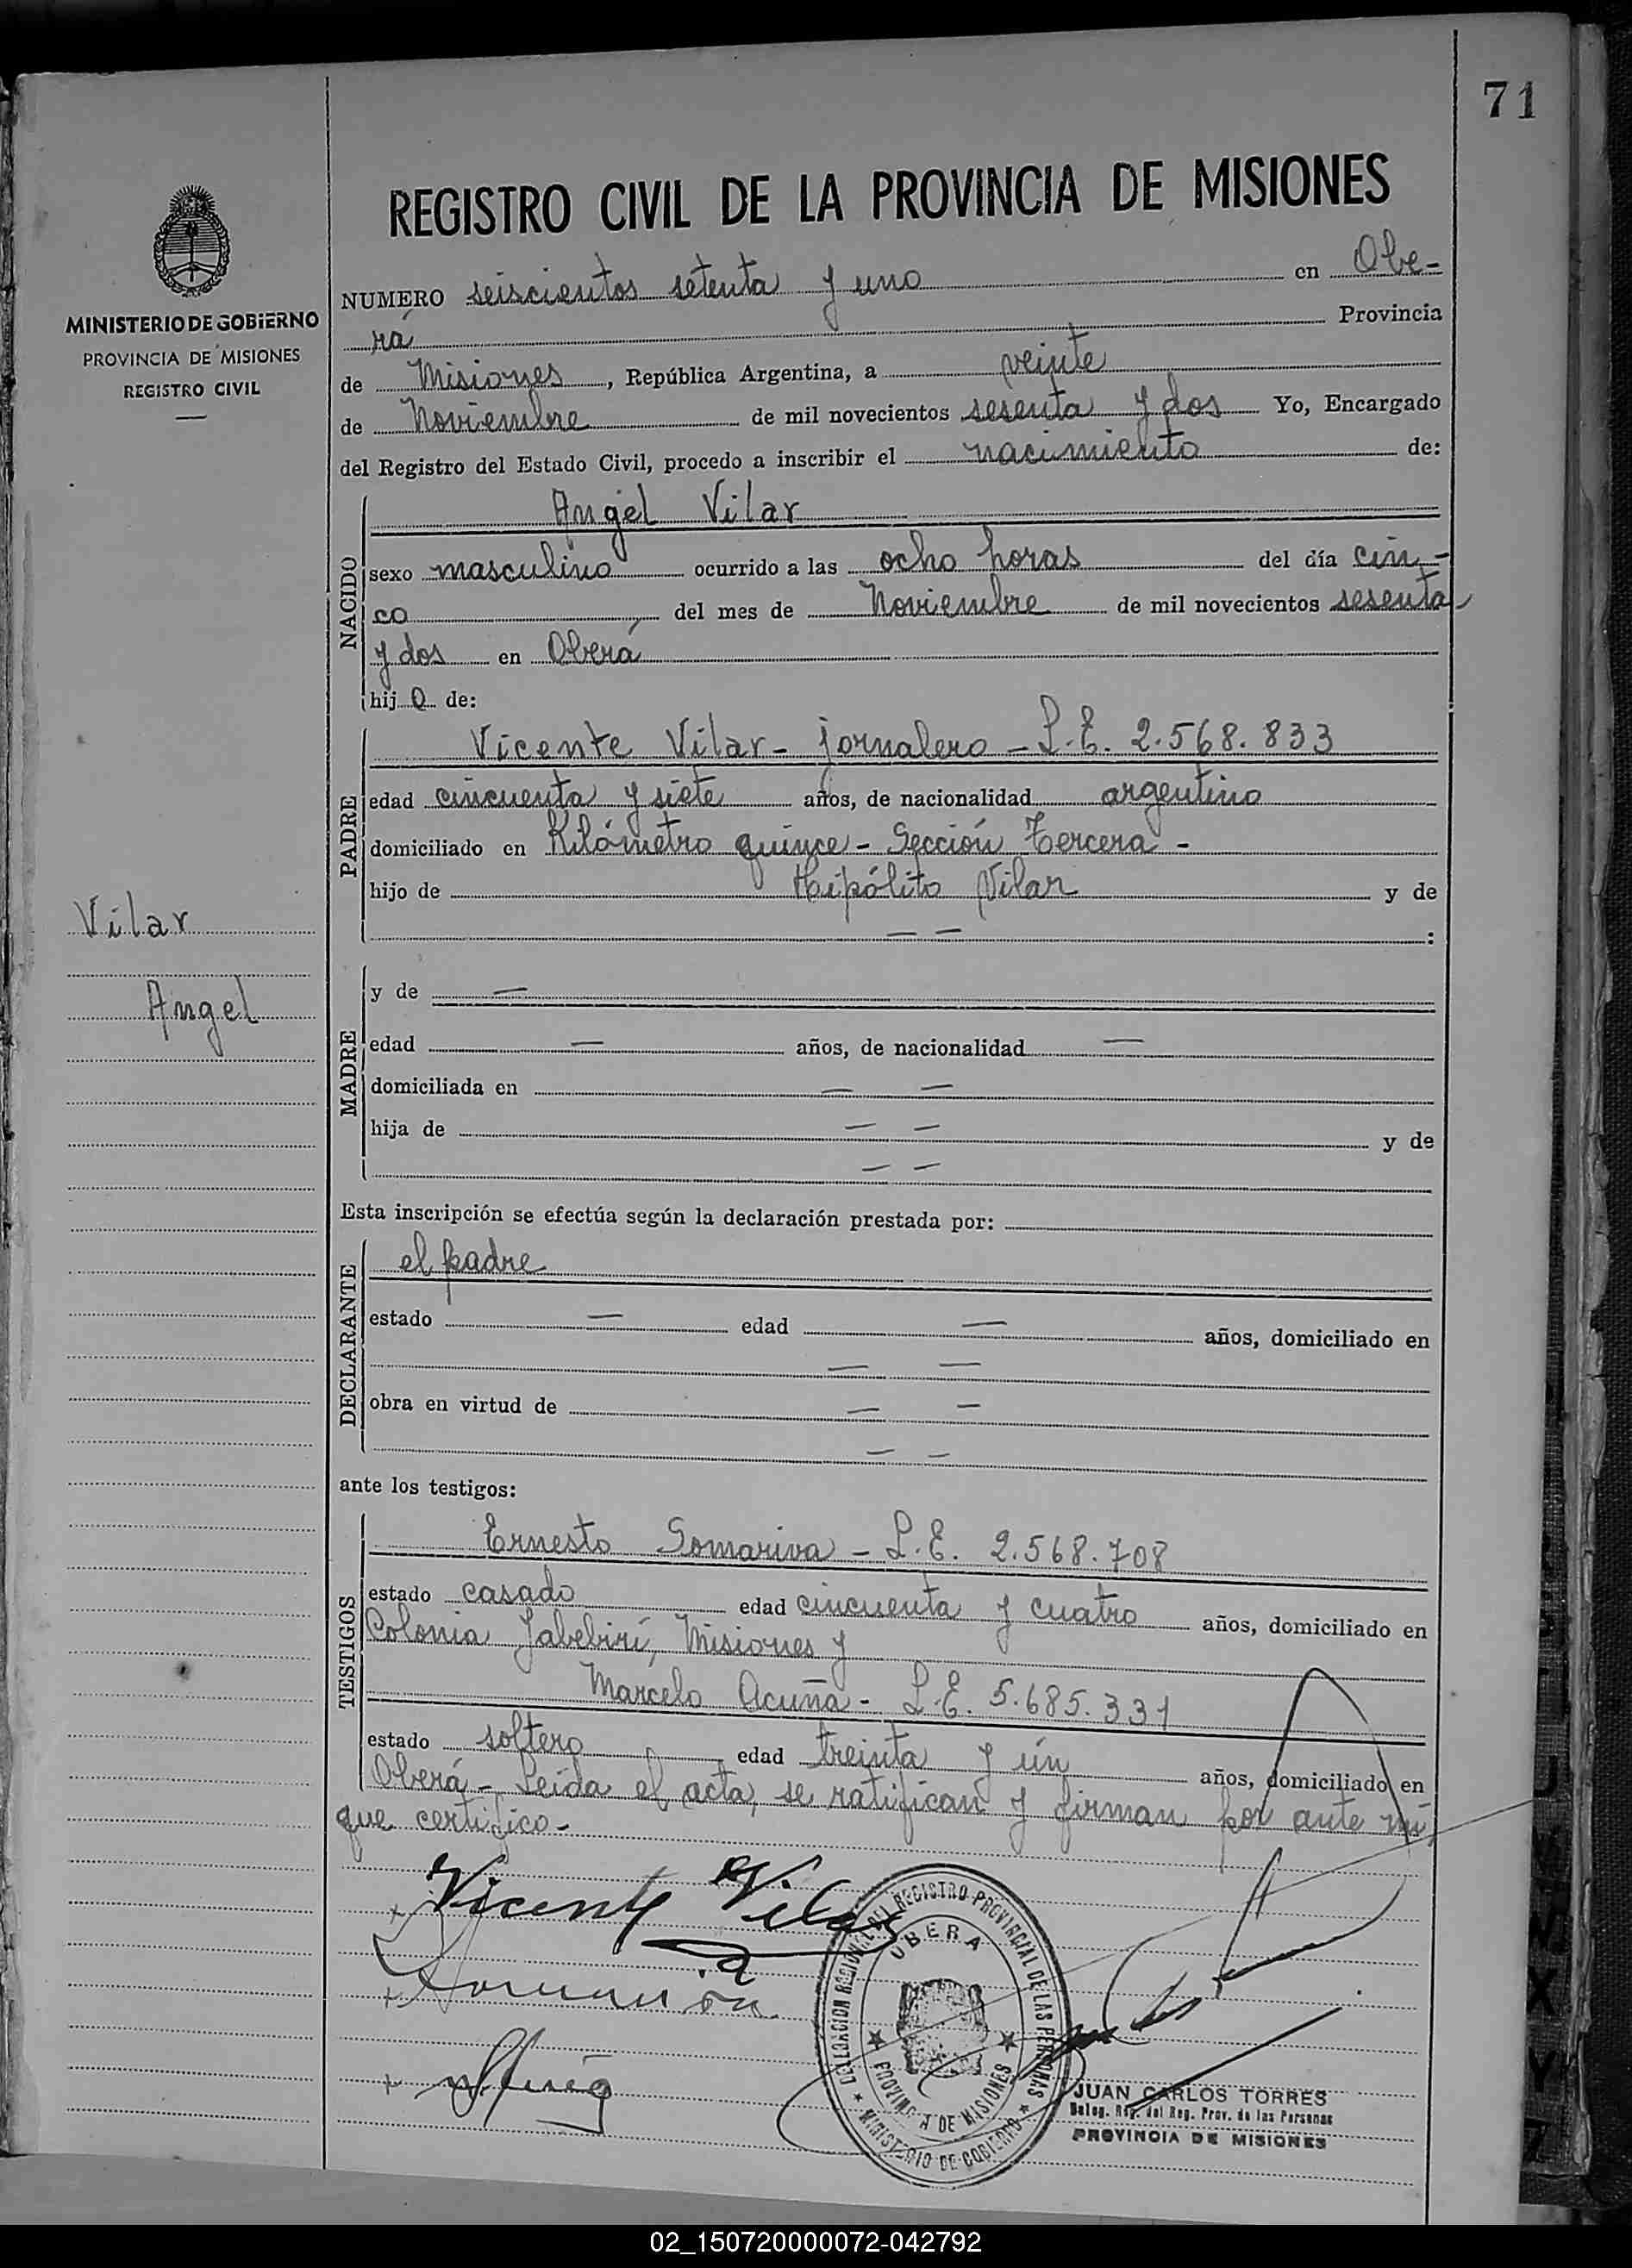 71
REGISTRO CIVIL DE LA PROVINCIA DE MISIONES
MINISTERIO DE GOBIERNO
PROVINCIA DE MISIONES
REGISTRO CIVIL
NUMERO seiscientos setenta y uno en Obe-
rá Provincia
de Misiones, República Argentina, a veinte
de Noviembre de mil novecientos sesenta y dos Yo, Encargado
del Registro del Estado Civil, procedo a inscribir el nacimiento de:
NACIDO
Angel Vilar
sexo masculino ocurrido a las ocho horas del día cin-
co del mes de Noviembre de mil novecientos sesenta
y dos en Oberá
hijo de:
PADRE
Vicente Vilar - jornalero - L.E. 2.568.833
edad cincuenta y siete años, de nacionalidad argentino
domiciliado en Kilómetro quince - Sección Tercera -
hijo de Hipólito Vilar y de
— — :
Vilar
Angel
MADRE
y de —
edad — años, de nacionalidad —
domiciliada en — —
hija de — — y de
— —
Esta inscripción se efectúa según la declaración prestada por:
DECLARANTE
el padre
estado — edad — años, domiciliado en
— —
obra en virtud de — —
— —
ante los testigos:
TESTIGOS
Ernesto Somariva - L.E. 2.568.708
estado casado edad cincuenta y cuatro años, domiciliado en
Colonia Jabebirí, Misiones y
Marcelo Acuña - L.E. 5.685.331
estado soltero edad treinta y un años, domiciliado en
Oberá - Leída el acta, se ratifican y firman por ante mí
que certifico -
Vicente Vilar
DELEGACION REGIONAL DEL REGISTRO PROVINCIAL DE LAS PERSONAS
OBERA
PROVINCIA DE MISIONES
MINISTERIO DE GOBIERNO
JUAN CARLOS TORRES
Deleg. Reg. del Reg. Prov. de las Personas
PROVINCIA DE MISIONES
02_150720000072-042792